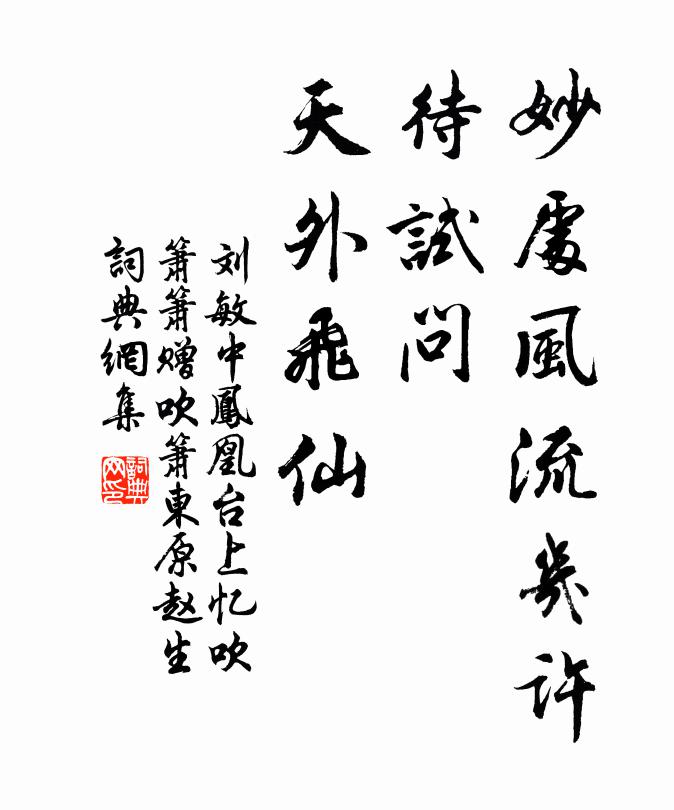 妙處風流幾許
待試問
天外飛仙
刘敏中鳳凰台上忆吹
簫簫赠吹簫東原赵生
詞典網集
詞典
网印